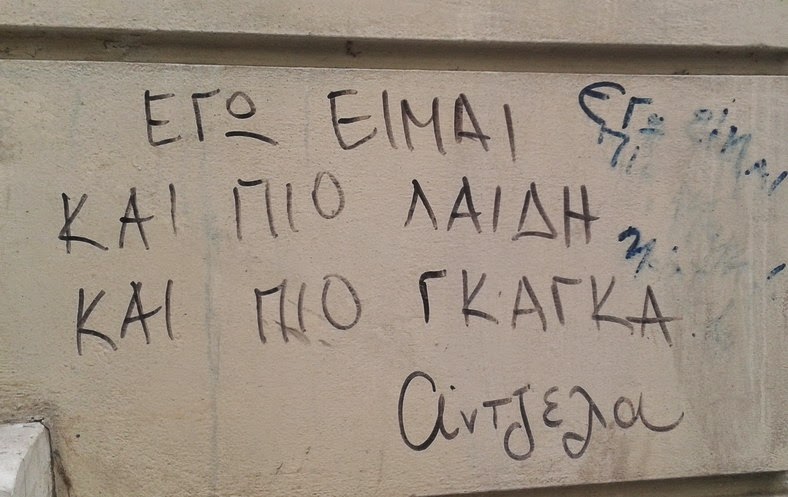 ΕΓΩ ΕΙΜΑΙ
ΚΑΙ ΠΙΟ ΛΑΙΔΗ
ΚΑΙ ΠΙΟ ΓΚΑΓΚΑ
αίντζελα
Εγω είμαι